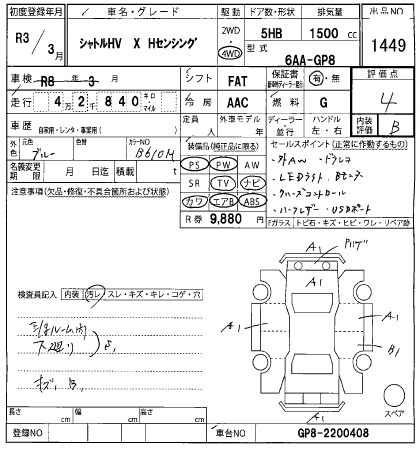 初度登録年月 車名・グレード 駆動 ドア数・形状 排気量 出品NO
R3/3月 シャトルHV X Hセンシング 2WD・4WD 5HB 1500 cc 1449
型式 6AA-GP8
車検 R8年3月 シフト FAT 保証書 有・無 評価点
走行 4万2千840 キロ・マイル 冷房 AAC 燃料 G 4
車歴 自家用・レンタ・事業用( ) 定員 人 外車モデル 年 ディーラー 並行 ハンドル 左・右 内装評価 B
外色 元色 ブルー 色替 カラーNO B610M 装備品(純正品に限る) セールスポイント(正常に作動するもの)
PS PW AW
・外AW ・ドラレコ
名義変更期限 月 日迄 積載 t SR TV ナビ
・LEDライト
注意事項(欠品・修復・不具合箇所および状態) カワ エアB ABS
・クルーズコントロール
・ハーフレザー ・USBポート
R券 9,880円 Fガラス トビ石・キズ・ヒビ・ワレ・リペア跡
検査員記入 内装 汚レ・スレ・キズ・キレ・コゲ・穴
下廻り S1
キズ、B1
A1
A1
A1
A1
B1
A1
スペア
長さ cm 幅 cm 高さ cm
登録NO 車台NO GP8-2200408